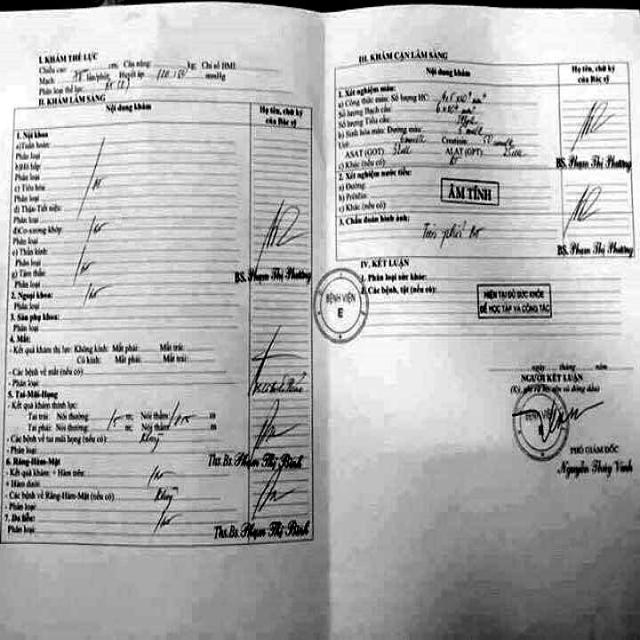 I. KHÁM THỂ LỰC
Chiều cao: cm Cân nặng: kg; Chỉ số BMI:
Mạch lần/phút; Huyết áp mmHg
Phân loại thể lực:
II. KHÁM LÂM SÀNG
Nội dung khám
Họ tên, chữ ký của Bác sỹ
1. Nội khoa
a) Tuần hoàn:
Phân loại
b) Hô hấp
Phân loại
c) Tiêu hóa
Phân loại
d) Thận-Tiết niệu:
Phân loại
đ) Cơ-xương-khớp
Phân loại
e) Thần kinh
Phân loại
g) Tâm thần
Phân loại
BS. Phạm Thị Phương
2. Ngoại khoa:
Phân loại
3. Sản phụ khoa:
Phân loại
4. Mắt:
- Kết quả khám thị lực: Không kính: Mắt phải: Mắt trái:
Có kính: Mắt phải: Mắt trái:
- Các bệnh về mắt (nếu có)
- Phân loại
5. Tai-Mũi-Họng
- Kết quả khám thính lực:
Tai trái: Nói thường: m; Nói thầm: m
Tai phải: Nói thường: m; Nói thầm: m
- Các bệnh về tai mũi họng (nếu có)
- Phân loại
Ths.Bs. Phạm Thị Bình
6. Răng-Hàm-Mặt
- Kết quả khám: + Hàm trên:
+ Hàm dưới:
- Các bệnh về Răng-Hàm-Mặt (nếu có)
- Phân loại
7. Da liễu:
Phân loại
Ths.Bs. Phạm Thị Bình
III. KHÁM CẬN LÂM SÀNG
Nội dung khám
Họ tên, chữ ký của Bác sỹ
1. Xét nghiệm máu:
a) Công thức máu: Số lượng HC:
Số lượng Bạch cầu:
Số lượng Tiểu cầu:
b) Sinh hóa máu: Đường máu:
Urê: Creatinin:
ASAT (GOT) ALAT (GPT)
c) Khác (nếu có)
BS. Phạm Thị Phương
2. Xét nghiệm nước tiểu:
a) Đường:
b) Prôtêin:
c) Khác (nếu có)
ÂM TÍNH
3. Chẩn đoán hình ảnh:
Tim phổi bt
BS. Phạm Thị Phương
IV. KẾT LUẬN
1. Phân loại sức khỏe:
2. Các bệnh, tật (nếu có):
BỆNH VIỆN
E
HIỆN TẠI ĐỦ SỨC KHỎE
ĐỂ HỌC TẬP VÀ CÔNG TÁC
ngày tháng năm
NGƯỜI KẾT LUẬN
BỆNH VIỆN
E
PHÓ GIÁM ĐỐC
Nguyễn Thúy Vinh